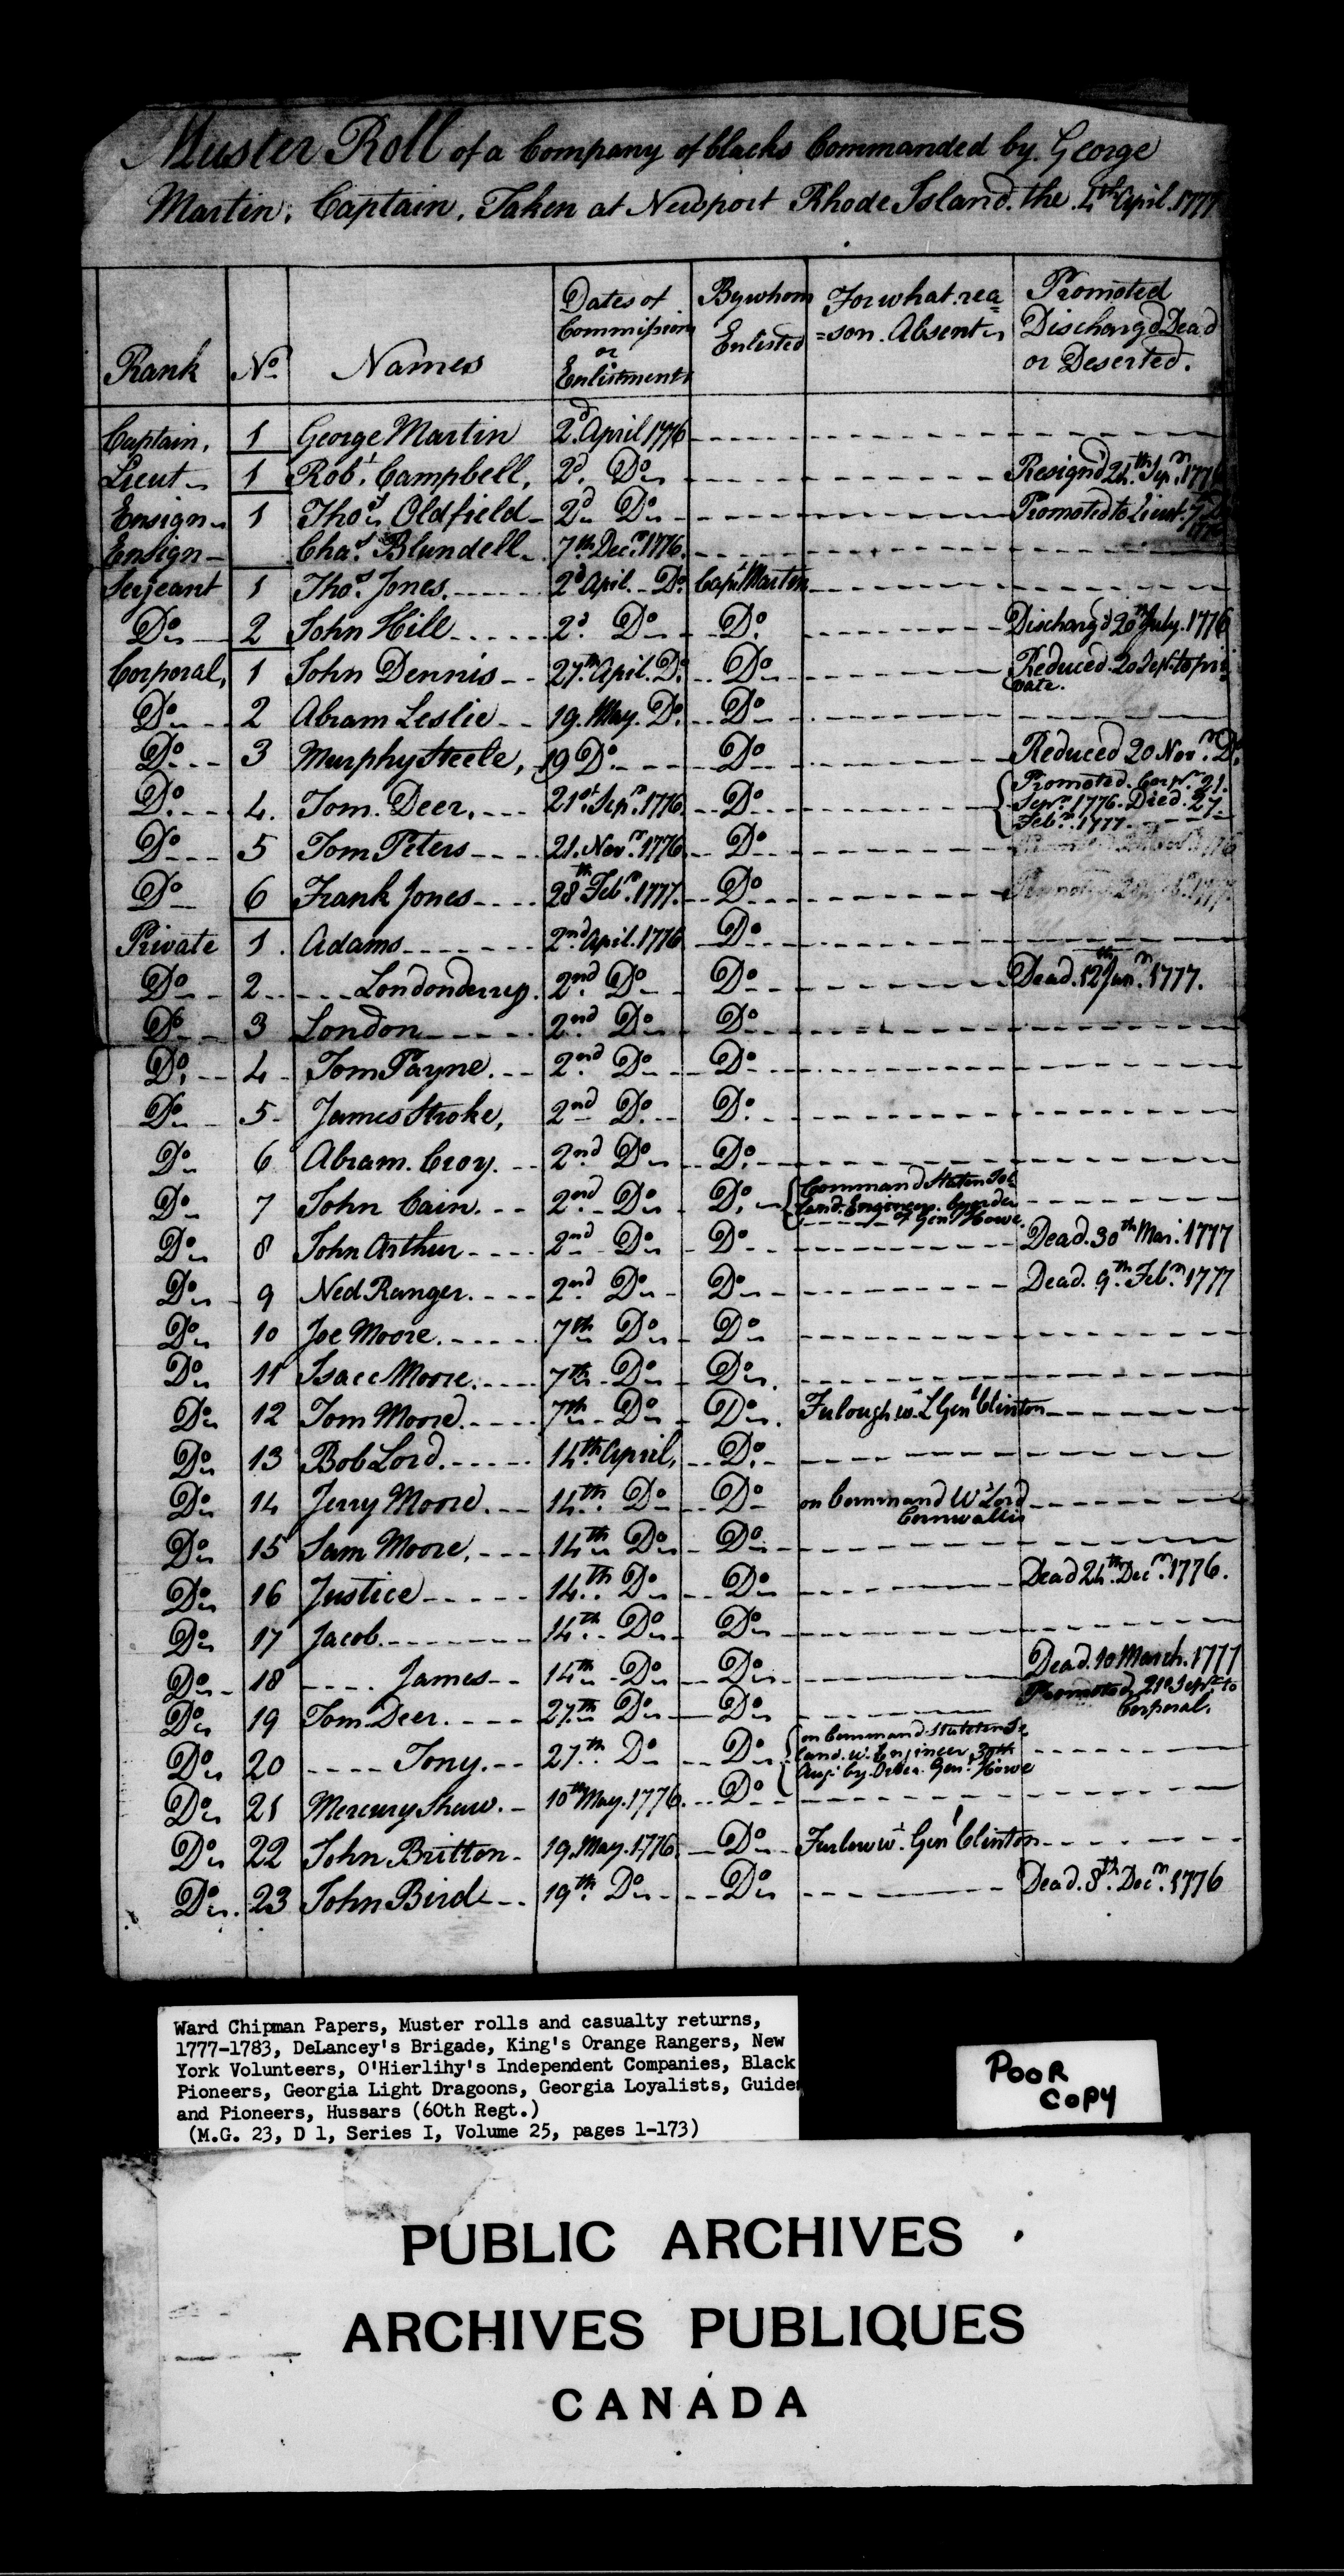 Muster Roll of a Company of blacks Commanded by George
Martin. Captain. Taken at Newport Rhode Island. the. 4th April. 1777
Rank No Names Dates of Commissions or Enlistments By whom Enlisted For what rea=son. Absent Promoted Discharg'd Dead or Deserted.
Captain. 1 George Martin 2d. April 1776
Lieut 1 Robt. Campbell, 2d. Do Resign'd 24th Sepr. 1776
Ensign 1 Thos. Oldfield 2d Do Promoted to Lieut.
Ensign Chas. Blundell 7th Decr. 1776
Serjeant 1 Thos. Jones. 2d April. Do. Capt. Martin
Do 2 John Hill 2d. Do Do. Discharg'd 20th July. 1776
Corporal, 1 John Dennis 27th. April. Do. Do Reduced. 20 Sepr. to pri
vate.
Do 2 Abram Leslie 19. May. Do. Do
Do 3 Murphy Steele, 19 Do Do Reduced 20 Novr. Do.
Do. 4. Tom. Deer, 21st. Sepr. 1776 Do Promoted. Corpr. 21.
Sepr. 1776. Died. 27
Febr. 1777.
Do 5 Tom Peters 21. Novr. 1776 Do
Do 6 Frank Jones 28th Febr. 1777. Do
Private 1. Adams 2nd. April. 1776 Do
Do 2 Londonderry. 2nd. Do Do Dead. 12th Janr. 1777.
Do 3 London 2nd Do Do
Do. 4 Tom Payne. 2nd. Do Do
Do 5 James Stroke, 2nd Do Do.
Do 6 Abram. Croy. 2nd. Do Do.
Do 7 John Cain. 2nd. Do Do. Command Staten Isl
land. Engineer. by order
of Genl. Howe
Do 8 John Arthur 2nd Do Do Dead. 30th Mar. 1777
Do 9 Ned Ranger. 2nd. Do Do Dead. 9th. Febr. 1777
Do 10 Joe Moore. 7th Do Do
Do 11 Isacc Moore. 7th Do Do.
Do 12 Tom Moore. 7th Do Do. Furlough wt. L Genl Clinton
Do 13 Bob Lord. 14th. April, Do.
Do 14 Jerry Moore. 14th. Do Do on Command Wt. Lord
Cornwallis
Do 15 Sam Moore. 14th Do Do
Do 16 Justice 14th Do Do Dead 24th. Decr. 1776.
Do 17 Jacob. 14th. Do Do
Do 18 James 14th Do Do Dead. 10 March. 1777
Do 19 Tom Deer. 27th Do Do Promoted 21st Sepr. to
Corporal.
Do 20 Tony. 27th. Do Do on Command. Statten Is
land. w. Engineer 30th
Augt. by Order. Genl. Howe
Do 21 Mercury Shaw. 10th May. 1776. Do
Do 22 John Britton 19. May. 1776. Do Furlow wt. Genl Clinton
Do. 23 John Bird 19th. Do Do Dead. 8th. Decr. 1776
Ward Chipman Papers, Muster rolls and casualty returns,
1777-1783, DeLancey's Brigade, King's Orange Rangers, New
York Volunteers, O'Hierlihy's Independent Companies, Black
Pioneers, Georgia Light Dragoons, Georgia Loyalists, Guides
and Pioneers, Hussars (60th Regt.)
(M.G. 23, D 1, Series I, Volume 25, pages 1-173)
POOR
COPY
PUBLIC ARCHIVES
ARCHIVES PUBLIQUES
CANADA